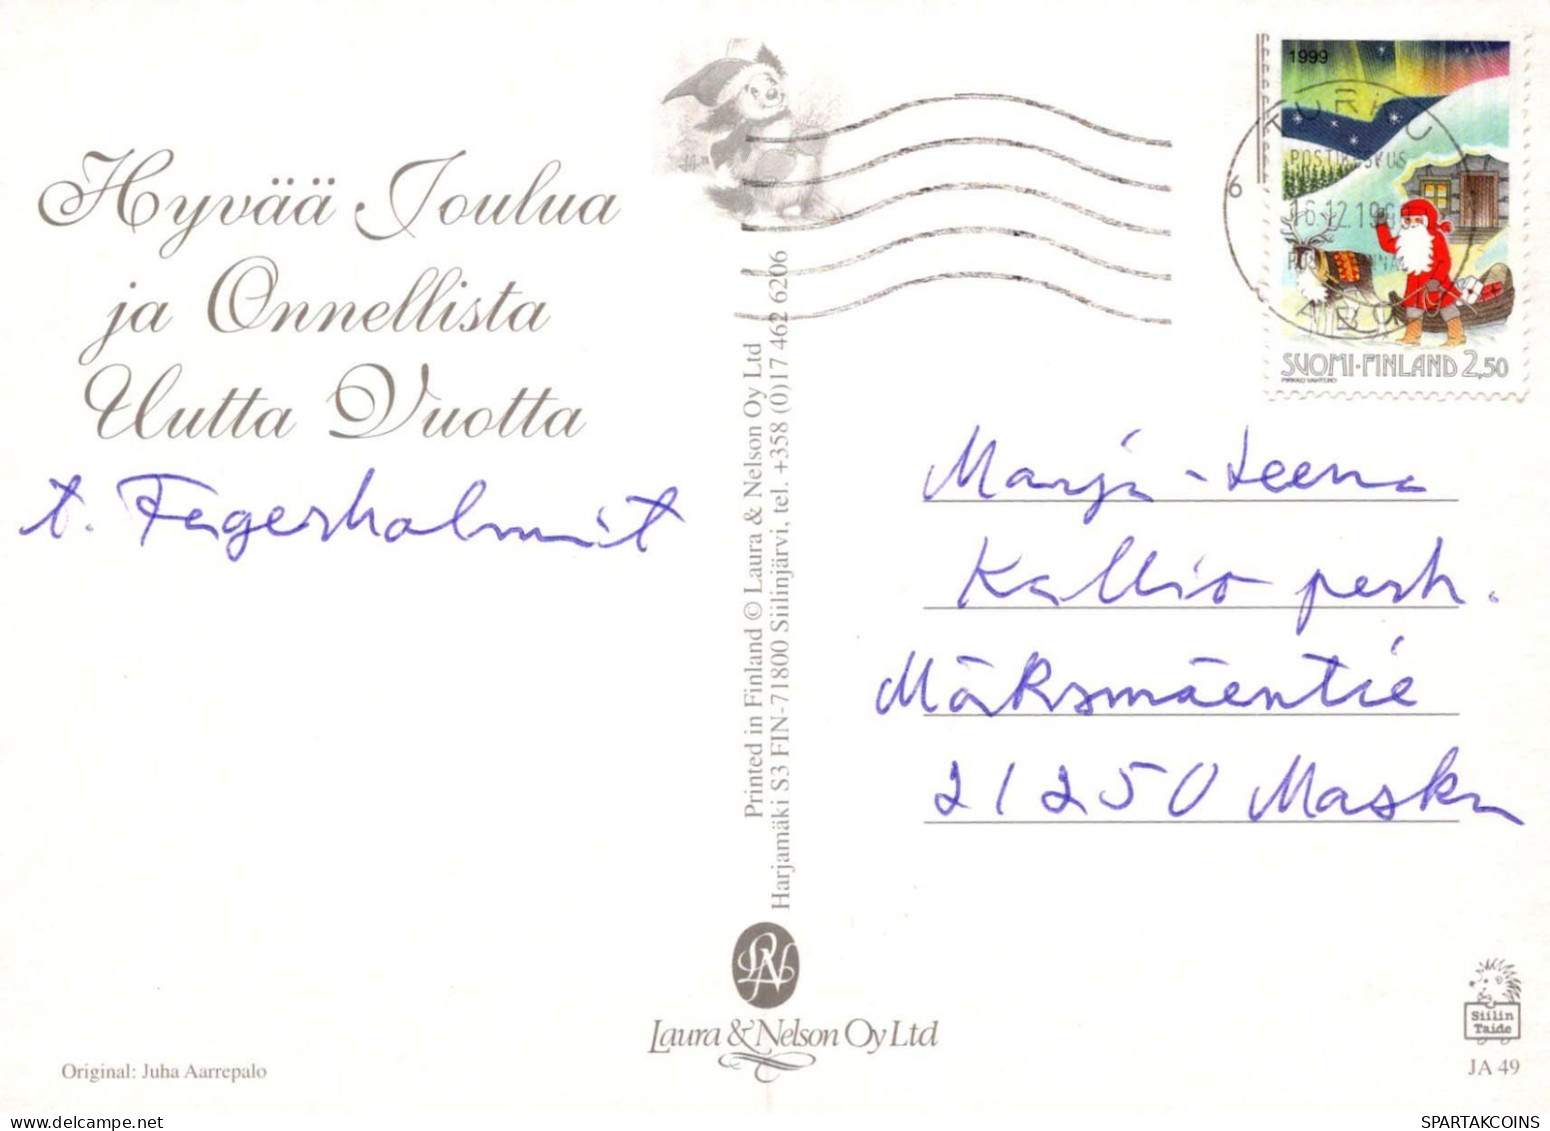 Hyvää Joulua
ja Onnellista
Uutta Vuotta
t. Fagerholmit
Printed in Finland © Laura & Nelson Oy Ltd
Harjamäki S3 FIN-71800 Siilinjärvi, tel. +358 (0)17 462 6206
1999
TURKU
POSTIKESKUS
16.12.199
6
ÅBO
SUOMI·FINLAND 2,50
PIRKKO VAHTERO
Marja-Leena
Kallio perh.
Mäksmäentie
21250 Masku
LN
Laura & Nelson Oy Ltd
Original: Juha Aarrepalo
Siilin
Taide
JA 49
SPARTAKCOINS